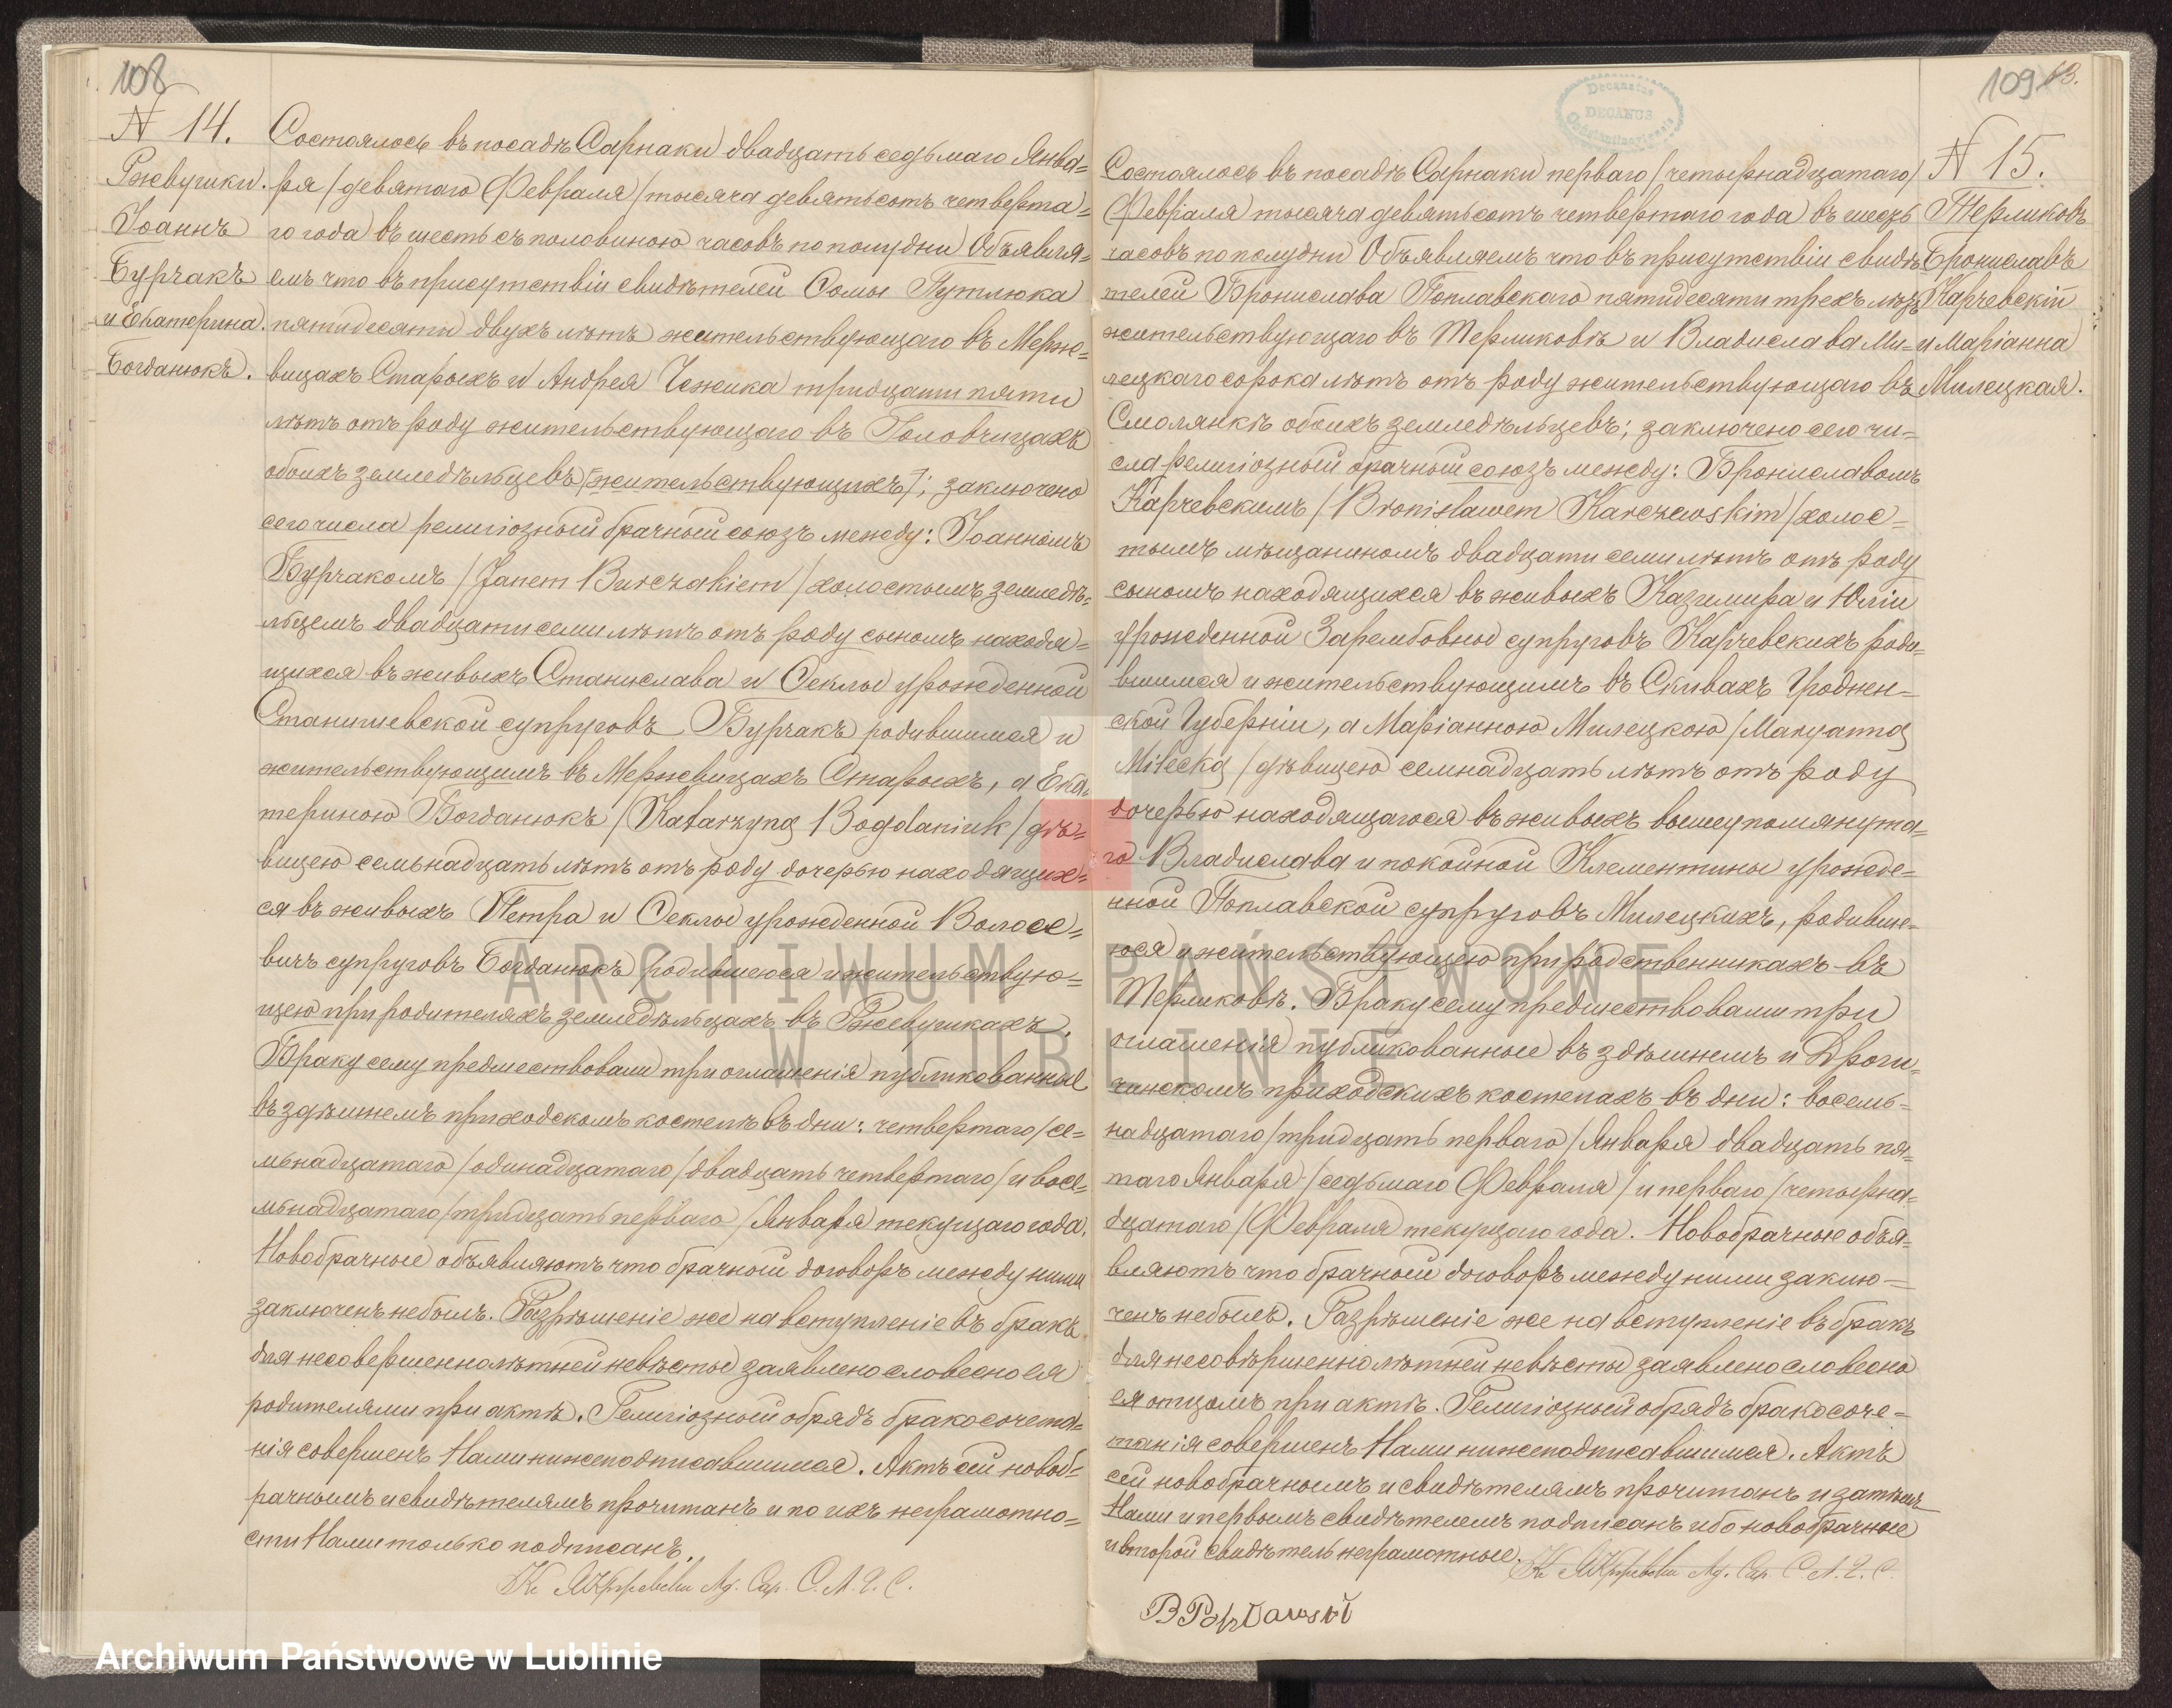 108
N 14.
Ржевушки.
Іоаннъ
Бурчакъ
и Екатерина
Богданюкъ.
Состоялось въ посадѣ Сарнаки двадцать седьмаго Янва=
ря /девятаго Февраля/ тысяча девятьсотъ четверта=
го года въ шесть съ половиною часовъ по полудни Объявля=
емъ что въ присутствіи свидѣтелей Сомы Путлюка
пятидесяти двухъ лѣтъ жительствующаго въ Мерже=
вицахъ Старыхъ и Андрея Чежика тридцати пяти
лѣтъ отъ роду жительствующаго въ Головчицахъ
обоихъ земледѣльцевъ [жительствующихъ]; заключено
сего числа религіозный брачный союзъ между: Іоанномъ
Бурчакомъ /Janem Burczakiem/ холостымъ земледѣ=
льцемъ двадцати семи лѣтъ отъ роду сыномъ находя=
щихся въ живыхъ Станислава и Феклы урожденной
Станишевской супруговъ Бурчакъ родившимся и
жительствующимъ въ Мержевицахъ Старыхъ, а Ека=
териною Богданюкъ /Katarzyną Bogdaniuk/ дѣ=
вицею семьнадцать лѣтъ отъ роду дочерью находящих=
ся въ живыхъ Петра и Феклы урожденной Волосе=
вичъ супруговъ Богданюкъ родившеюся и жительствую=
щею при родителяхъ земледѣльцахъ въ Ржевушкахъ.
Браку сему предшествовали три оглашенія публикованные
въ здѣшнемъ приходскомъ костелѣ въ дни: четвертаго /се=
мьнадцатаго/ одинадцатаго /двадцать четвертаго/ и восе=
мьнадцатаго /тридцать перваго/ Января текущаго года.
Новобрачные объявляютъ что брачный договоръ между ними
заключенъ небылъ. Разрѣшеніе же на вступленіе въ бракъ
для несовершеннолѣтней невѣсты заявлено словесно ея
родителями при актѣ. Религіозный обрядъ бракосочета=
нія совершенъ Нами нижеподписавшимся. Актъ сей новоб=
рачнымъ и свидѣтелямъ прочитанъ и по ихъ неграмотно=
сти Нами только подписанъ.
109 63.
Decanatus
DECANUS
N 15.
Терликовъ
Брониславъ
Карчевскій
и Маріанна
Милецкая.
Состоялось въ посадѣ Сарнаки перваго /четырнадцатаго/
Февраля тысяча девятьсотъ четвертаго года въ шесть
часовъ пополудни Объявляемъ что въ присутствіи свидѣ
телей Бронислава Поплавскаго пятидесяти трехъ лѣтъ
жительствующаго въ Терликовѣ и Владислава Ми=
лецкаго сорока лѣтъ отъ роду жительствующаго въ
Смолянкѣ обоихъ земледѣльцевъ; заключено сего чи=
сла религіозный брачный союзъ между: Брониславомъ
Карчевскимъ /Bronisławem Karczewskim/ холос=
тымъ мѣщаниномъ двадцати семи лѣтъ отъ роду
сыномъ находящихся въ живыхъ Казимира и Юліи
урожденной Зарембовны супруговъ Карчевскихъ роди=
вшимся и жительствующимъ въ Скивахъ Гроднен=
ской Губерніи, а Маріанною Милецкою /Maryanną
Milecką/ дѣвицею семнадцать лѣтъ отъ роду
дочерью находящагося въ живыхъ вышеупомянута=
го Владислава и покойной Клементины урожде=
нной Поплавской супруговъ Милецкихъ, родивше=
юся и жительствующею при родственникахъ въ
Терликовѣ. Браку сему предшествовали три
оглашенія публикованные въ здѣшнемъ и Дроги=
чинскомъ приходскихъ костелахъ въ дни: восемь=
надцатаго /тридцать перваго/ Января двадцать пя=
таго Января /седьмаго Февраля/ и перваго /четырна=
дцатаго/ Февраля текущаго года. Новобрачные объя=
вляютъ что брачный договоръ между ними заклю=
ченъ небылъ. Разрѣшеніе же на вступленіе въ бракъ
для несовѣршеннолѣтней невѣсты заявлено словесно
ея отцомъ при актѣ. Религіозный обрядъ бракосоче=
танія совершенъ Нами нижеподписавшимся. Актъ
сей новобрачнымъ и свидѣтелямъ прочитанъ и затѣмъ
Нами и первымъ свидѣтелемъ подписанъ ибо новобрачные
и второй свидѣтель неграмотные.
B Popławski
ARCHIWUM PAŃSTWOWE
W LUBLINIE
Archiwum Państwowe w Lublinie